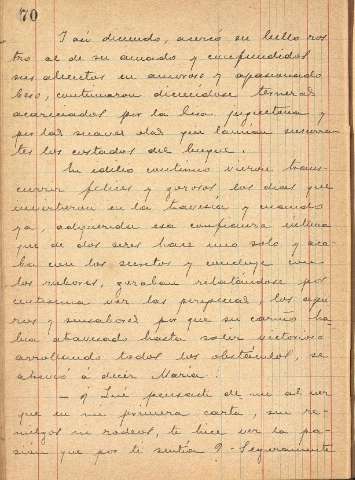 70
I así diciendo, acercó su bello ros
tro al de su amado y confundidos
sus alientos en amoroso y apasionado
beso, continuaron diciéndose ternezas
acariciados por la brisa juguetona y
por las suaves olas que lamian susurran
tes los costados del buque.
En idilio continuo vieron trans-
currir felices y gozosos los dias que
invirtieron en la travesia y cuando
ya, adquirida esa confianza intima
que de dos seres hace uno solo y aca
ba con los secretos y concluye con
los rubores, gozaban relatándose por
centesima vez las peripecias, los apu
ros y sinsabores por que su cariño ha
bia atravesado hasta salir victorioso
arrollando todos los obstáculos, se
atrevió á decir Maria.
— ¿ Que pensaste de mi al ver
que en mi primera carta, sin re-
milgos ni rodeos, te hice ver la pa-
sión que por ti sentia ? - Seguramente